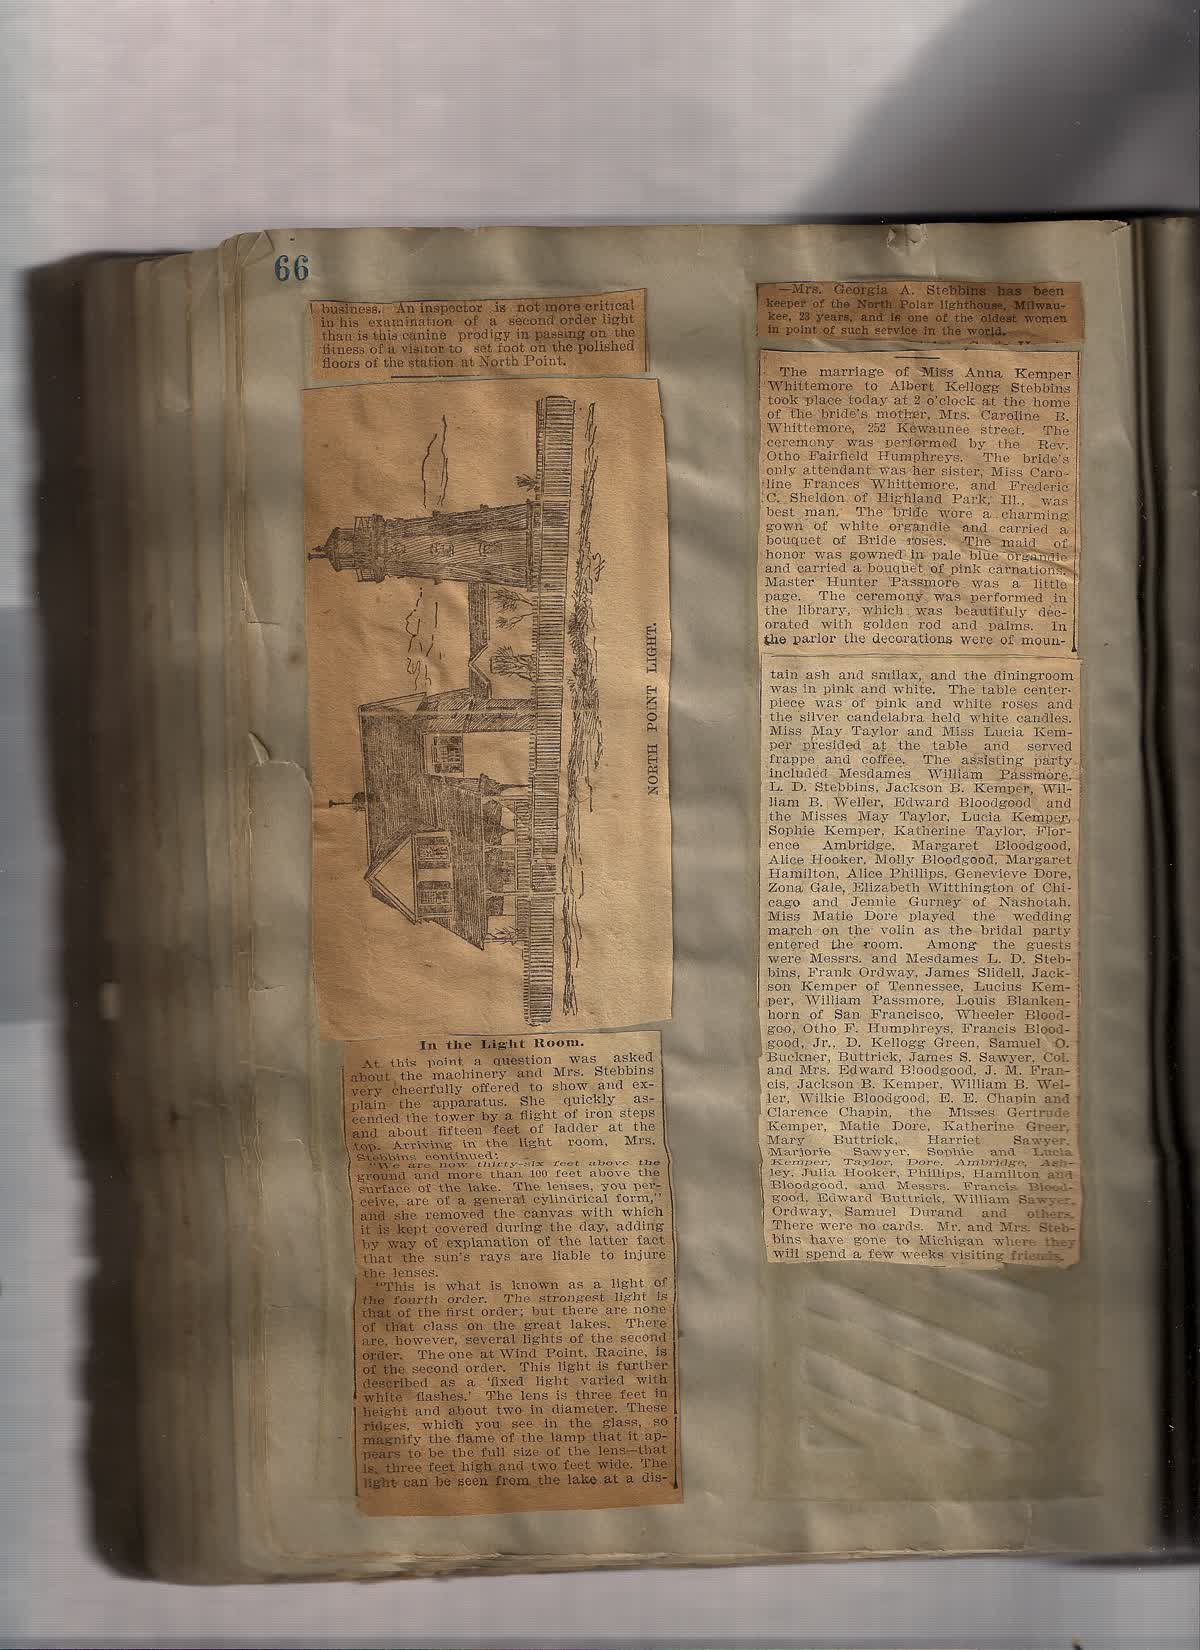 66
business. An inspector is not more critical
in his examination of a second order light
than is this canine prodigy in passing on the
fitness of a visitor to set foot on the polished
floors of the station at North Point.
NORTH POINT LIGHT.
In the Light Room.
At this point a question was asked
about the machinery and Mrs. Stebbins
very cheerfully offered to show and ex-
plain the apparatus. She quickly as-
cended the tower by a flight of iron steps
and about fifteen feet of ladder at the
top. Arriving in the light room, Mrs.
Stebbins continued:
"We are now thirty-six feet above the
ground and more than 100 feet above the
surface of the lake. The lenses, you per-
ceive, are of a general cylindrical form,"
and she removed the canvas with which
it is kept covered during the day, adding
by way of explanation of the latter fact
that the sun's rays are liable to injure
the lenses.
"This is what is known as a light of
the fourth order. The strongest light is
that of the first order; but there are none
of that class on the great lakes. There
are, however, several lights of the second
order. The one at Wind Point, Racine, is
of the second order. This light is further
described as a 'fixed light varied with
white flashes.' The lens is three feet in
height and about two in diameter. These
ridges, which you see in the glass, so
magnify the flame of the lamp that it ap-
pears to be the full size of the lens—that
is, three feet high and two feet wide. The
light can be seen from the lake at a dis-
—Mrs. Georgia A. Stebbins has been
keeper of the North Polar lighthouse, Milwau-
kee, 23 years, and is one of the oldest women
in point of such service in the world.
The marriage of Miss Anna Kemper
Whittemore to Albert Kellogg Stebbins
took place today at 2 o'clock at the home
of the bride's mother, Mrs. Caroline B.
Whittemore, 252 Kewaunee street. The
ceremony was performed by the Rev.
Otho Fairfield Humphreys. The bride's
only attendant was her sister, Miss Caro-
line Frances Whittemore, and Frederic
C. Sheldon of Highland Park, Ill., was
best man. The bride wore a charming
gown of white organdie and carried a
bouquet of Bride roses. The maid of
honor was gowned in pale blue organdie
and carried a bouquet of pink carnations.
Master Hunter Passmore was a little
page. The ceremony was performed in
the library, which was beautifuly dec-
orated with golden rod and palms. In
the parlor the decorations were of moun-
tain ash and smilax, and the diningroom
was in pink and white. The table center-
piece was of pink and white roses and
the silver candelabra held white candles.
Miss May Taylor and Miss Lucia Kem-
per presided at the table and served
frappe and coffee. The assisting party
included Mesdames William Passmore,
L. D. Stebbins, Jackson B. Kemper, Wil-
liam B. Weller, Edward Bloodgood and
the Misses May Taylor, Lucia Kemper,
Sophie Kemper, Katherine Taylor, Flor-
ence Ambridge, Margaret Bloodgood,
Alice Hooker, Molly Bloodgood, Margaret
Hamilton, Alice Phillips, Genevieve Dore,
Zona Gale, Elizabeth Witthington of Chi-
cago and Jennie Gurney of Nashotah.
Miss Matie Dore played the wedding
march on the volin as the bridal party
entered the room. Among the guests
were Messrs. and Mesdames L. D. Steb-
bins, Frank Ordway, James Slidell, Jack-
son Kemper of Tennessee, Lucius Kem-
per, William Passmore, Louis Blanken-
horn of San Francisco, Wheeler Blood-
goo, Otho F. Humphreys, Francis Blood-
good, Jr., D. Kellogg Green, Samuel O.
Buckner, Buttrick, James S. Sawyer, Col.
and Mrs. Edward Bloodgood, J. M. Fran-
cis, Jackson B. Kemper, William B. Wel-
ler, Wilkie Bloodgood, E. E. Chapin and
Clarence Chapin, the Misses Gertrude
Kemper, Matie Dore, Katherine Greer,
Mary Buttrick, Harriet Sawyer,
Marjorie Sawyer, Sophie and Lucia
Kemper, Taylor, Dore, Ambridge, Ash-
ley, Julia Hooker, Phillips, Hamilton and
Bloodgood, and Messrs. Francis Blood-
good, Edward Buttrick, William Sawyer,
Ordway, Samuel Durand and others.
There were no cards. Mr. and Mrs. Steb-
bins have gone to Michigan where they
will spend a few weeks visiting friends.